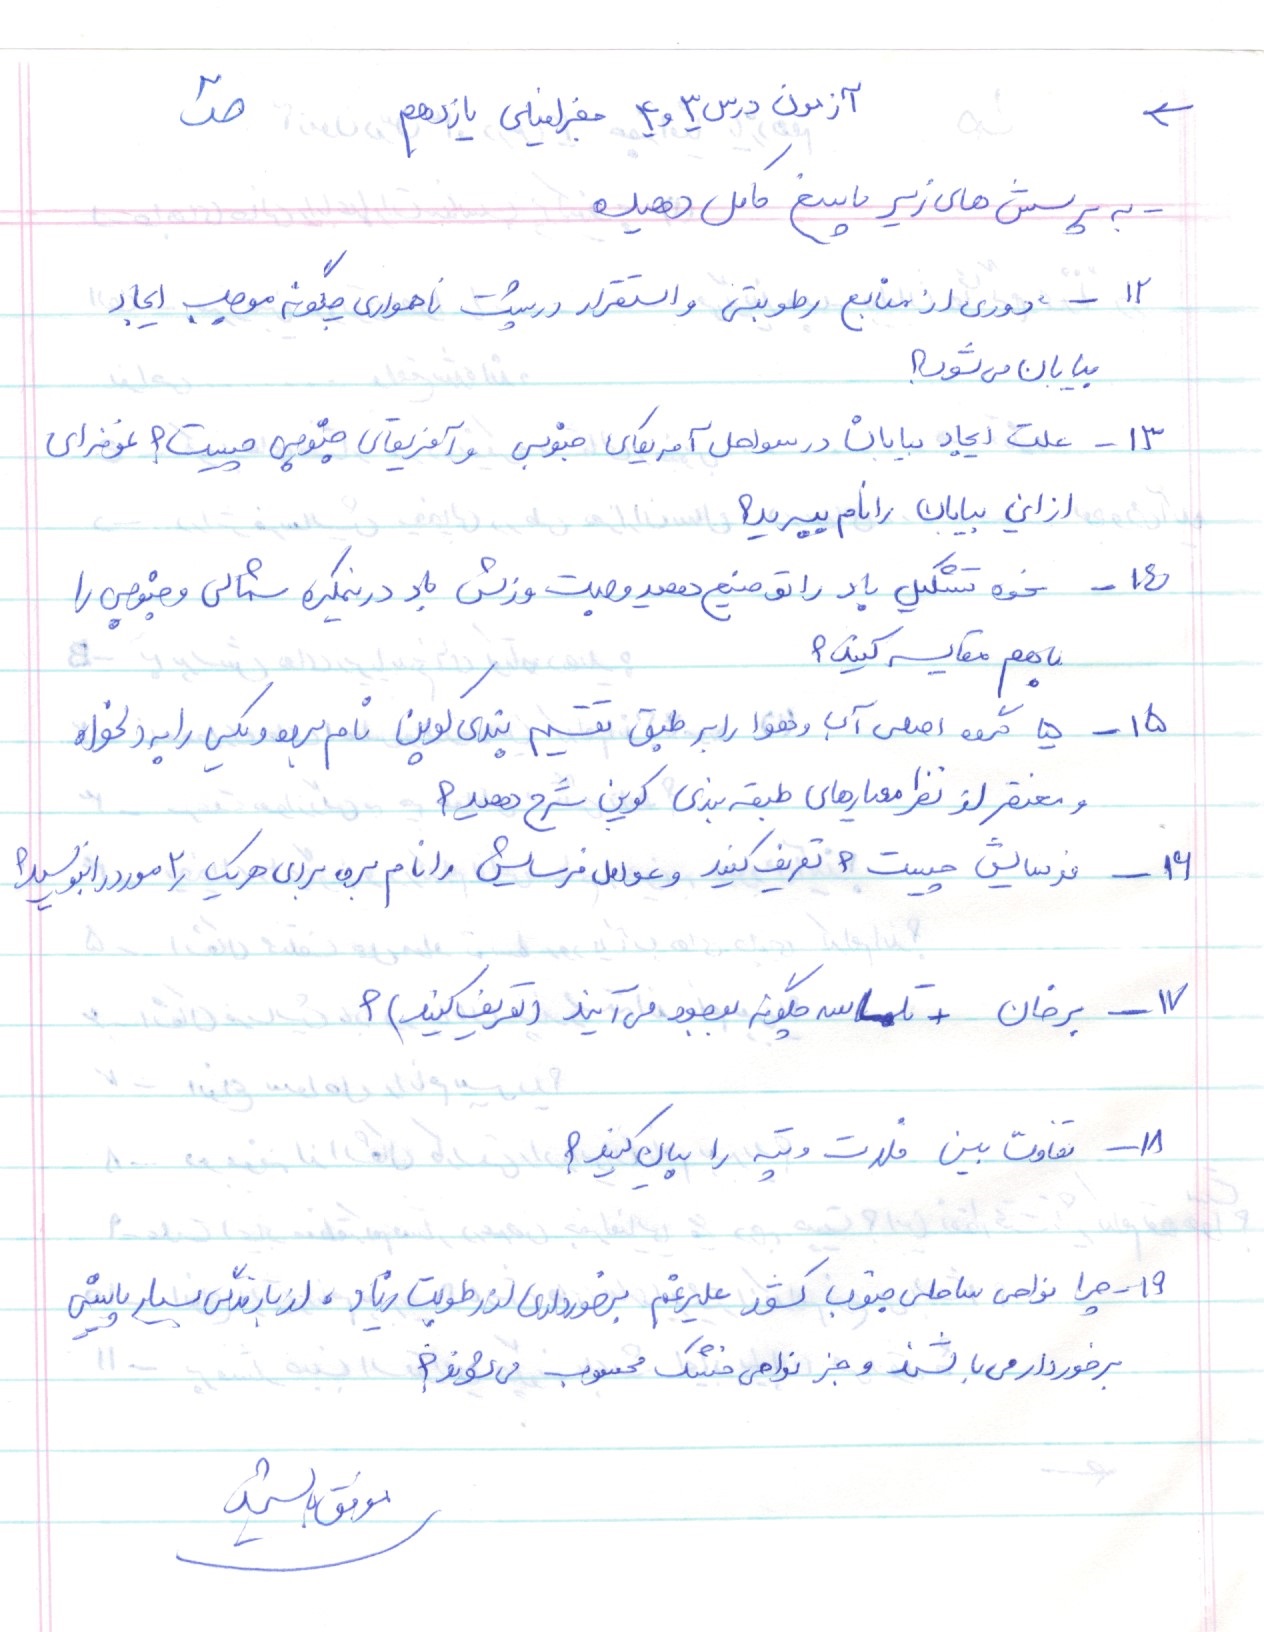 آزمون درس ۳ و ۴ جغرافیای یازدهم ص۲
- به پرسش های زیر پاسخ کامل دهید
۱۲ - دوری از منابع رطوبتی و استقرار در پشت ناهمواری چگونه موجب ایجاد
بیابان می شود؟
۱۳ - علت ایجاد بیابان در سواحل آمریکای جنوبی و آفریقای جنوبی چیست؟ نمونه ای
از این بیابان را نام ببرید؟
۱۴ - نحوه تشکیل باد را توضیح دهید و جهت وزش باد در نیمکره شمالی و جنوبی را
باهم مقایسه کنید؟
۱۵ - ۵ گروه اصلی آب و هوا را بر طبق تقسیم بندی کوپن نام برده و یکی را به دلخواه
و مختصر از نظر معیارهای طبقه بندی کوپن شرح دهید؟
۱۶ - فرسایش چیست؟ تعریف کنید و عوامل فرسایش را نام برده برای هریک ۲ مورد را بنویسید؟
۱۷ - برخان + تالوس چگونه بوجود می آیند (تعریف کنید)؟
۱۸ - تفاوت بین فلات و تپه را بیان کنید؟
۱۹ - چرا نواحی ساحلی جنوب کشور علیرغم برخورداری از رطوبت زیاد، از بارندگی بسیار پایینی
برخوردار می باشند و جز نواحی خشک محسوب می شوند؟
موفق باشید